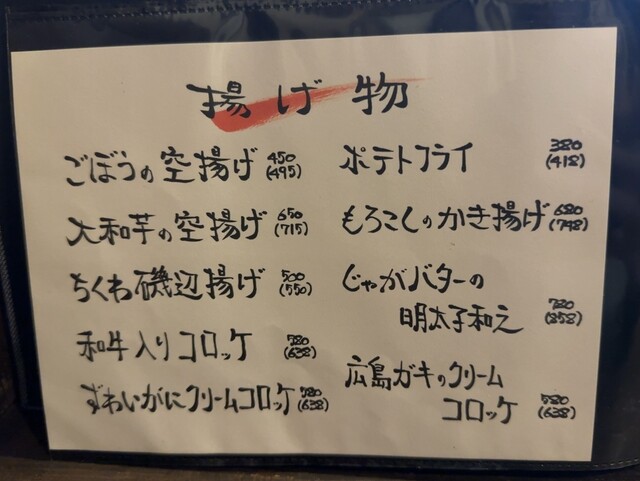 揚げ物
ごぼうの空揚げ 450 (495)
大和芋の空揚げ 650 (715)
ちくわ磯辺揚げ 500 (550)
和牛入りコロッケ 580 (638)
ずわいがにクリームコロッケ 580 (638)
ポテトフライ 380 (418)
もろこしのかき揚げ 680 (748)
じゃがバターの
明太子和え 780 (858)
広島ガキのクリーム
コロッケ 580 (638)